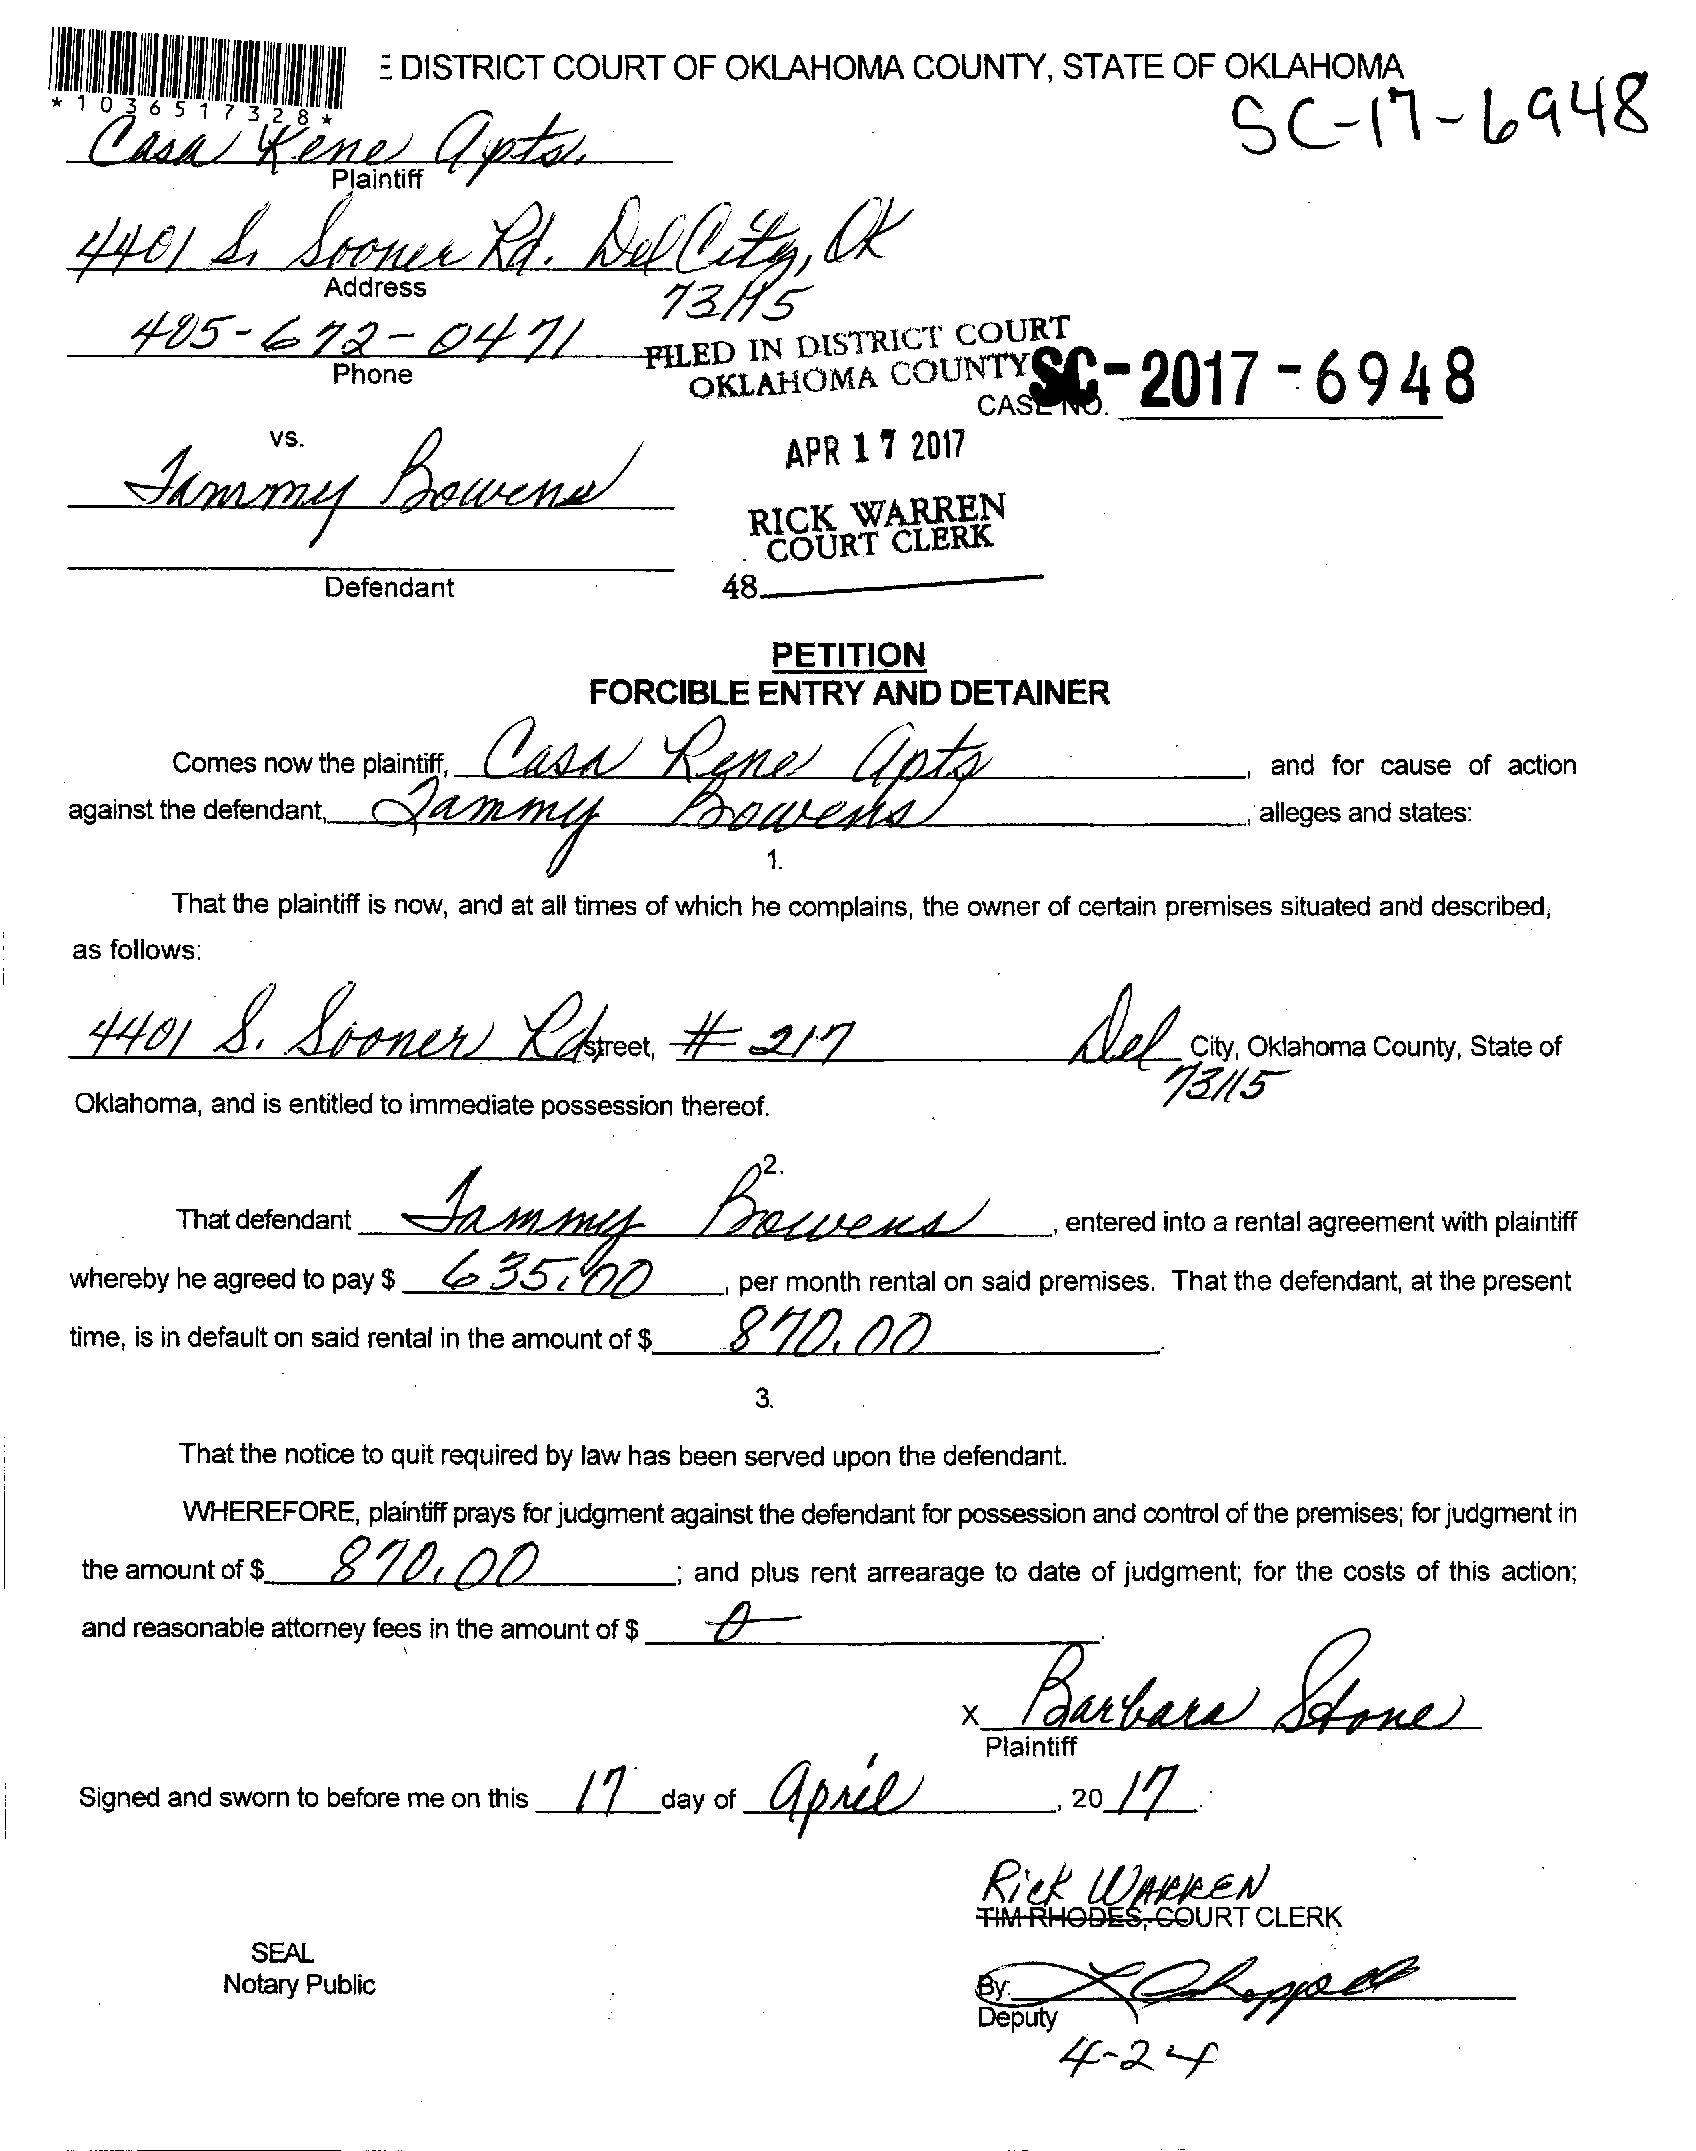 DISTRICT COURT OF OKLAHOMA COUNTY, STATE OF OKLAHOMA
*1036517328*
SC-17-6948
Casa Rene Apts.
Plaintiff
4401 S. Sooner Rd. Del City, OK
Address
73115
405-672-0471
Phone
FILED IN DISTRICT COURT
OKLAHOMA COUNTY
CASE NO. SC-2017-6948
vs.
APR 17 2017
Tammy Bowens
RICK WARREN
COURT CLERK
Defendant
48
PETITION
FORCIBLE ENTRY AND DETAINER
Comes now the plaintiff, Casa Rene Apts, and for cause of action
against the defendant, Tammy Bowens, alleges and states:
1.
That the plaintiff is now, and at all times of which he complains, the owner of certain premises situated and described,
as follows:
4401 S. Sooner Rd street, # 217 Del City, Oklahoma County, State of
73115
Oklahoma, and is entitled to immediate possession thereof.
2.
That defendant Tammy Bowens, entered into a rental agreement with plaintiff
whereby he agreed to pay $ 635.00, per month rental on said premises. That the defendant, at the present
time, is in default on said rental in the amount of $ 870.00.
3.
That the notice to quit required by law has been served upon the defendant.
WHEREFORE, plaintiff prays for judgment against the defendant for possession and control of the premises; for judgment in
the amount of $ 870.00; and plus rent arrearage to date of judgment; for the costs of this action;
and reasonable attorney fees in the amount of $ 0.
X Barbara Stone
Plaintiff
Signed and sworn to before me on this 17 day of April, 20 17.
Rick WARREN
TIM RHODES, COURT CLERK
SEAL
Notary Public
By:
Deputy
4-24